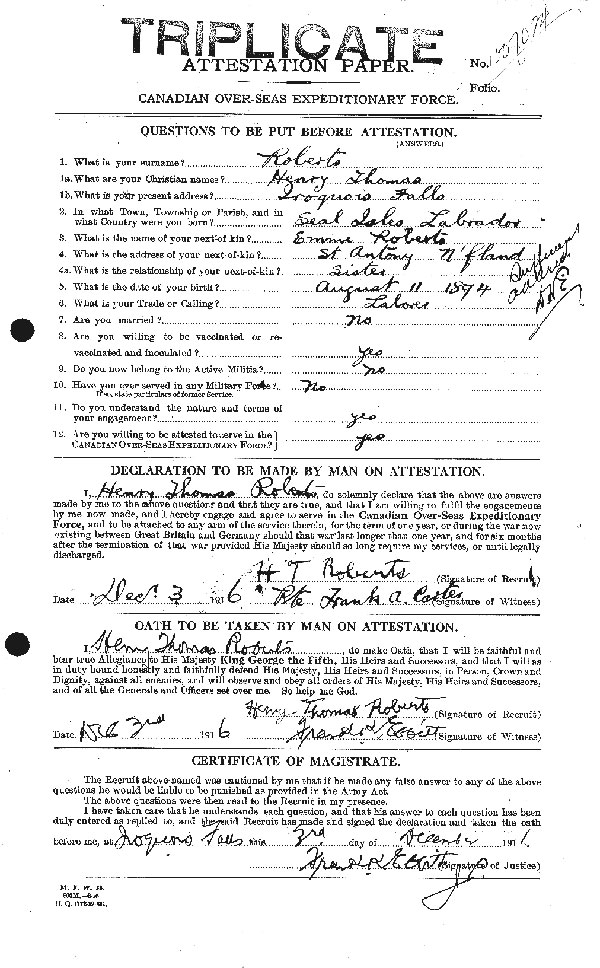 TRIPLICATE
ATTESTATION PAPER.
No.
Folio.
CANADIAN OVER-SEAS EXPEDITIONARY FORCE.
QUESTIONS TO BE PUT BEFORE ATTESTATION.
(ANSWERS)
1. What is your surname? Roberts
1a. What are your Christian names? Henry Thomas
1b. What is your present address? Iroquois Falls
2. In what Town, Township or Parish, and in
what Country were you born? Seal Isles, Labrador
3. What is the name of your next-of-kin? Emma Roberts
4. What is the address of your next-of-kin? St Antony N'fland
4a. What is the relationship of your next-of-kin? Sister
5. What is the date of your birth? August 11 1894
6. What is your Trade or Calling? Labor
7. Are you married? No
8. Are you willing to be vaccinated or re-
vaccinated and inoculated? yes
9. Do you now belong to the Active Militia? no
10. Have you ever served in any Military Force? No
If so, state particulars of former Service.
11. Do you understand the nature and terms of
your engagement? yes
12. Are you willing to be attested to serve in the
CANADIAN OVER-SEAS EXPEDITIONARY FORCE? yes
DECLARATION TO BE MADE BY MAN ON ATTESTATION.
I, Henry Thomas Roberts, do solemnly declare that the above are answers
made by me to the above questions and that they are true, and that I am willing to fulfil the engagements
by me now made, and I hereby engage and agree to serve in the Canadian Over-Seas Expeditionary
Force, and to be attached to any arm of the service therein, for the term of one year, or during the war now
existing between Great Britain and Germany should that war last longer than one year, and for six months
after the termination of that war provided His Majesty should so long require my services, or until legally
discharged.
H T Roberts (Signature of Recruit)
Date Dec 3 1916 Pte Frank A. (Signature of Witness)
OATH TO BE TAKEN BY MAN ON ATTESTATION.
I, Henry Thomas Roberts, do make Oath, that I will be faithful and
bear true Allegiance to His Majesty King George the Fifth, His Heirs and Successors, and that I will as
in duty bound honestly and faithfully defend His Majesty, His Heirs and Successors, in Person, Crown and
Dignity, against all enemies, and will observe and obey all orders of His Majesty, His Heirs and Successors,
and of all the Generals and Officers set over me. So help me God.
Henry Thomas Roberts (Signature of Recruit)
Date Dec 3rd 1916 (Signature of Witness)
CERTIFICATE OF MAGISTRATE.
The Recruit above-named was cautioned by me that if he made any false answer to any of the above
questions he would be liable to be punished as provided in the Army Act.
The above questions were then read to the Recruit in my presence.
I have taken care that he understands each question, and that his answer to each question has been
duly entered as replied to, and the said Recruit has made and signed the declaration and taken the oath
before me, at Iroquois Falls this 3rd day of December 1916.
(Signature of Justice)